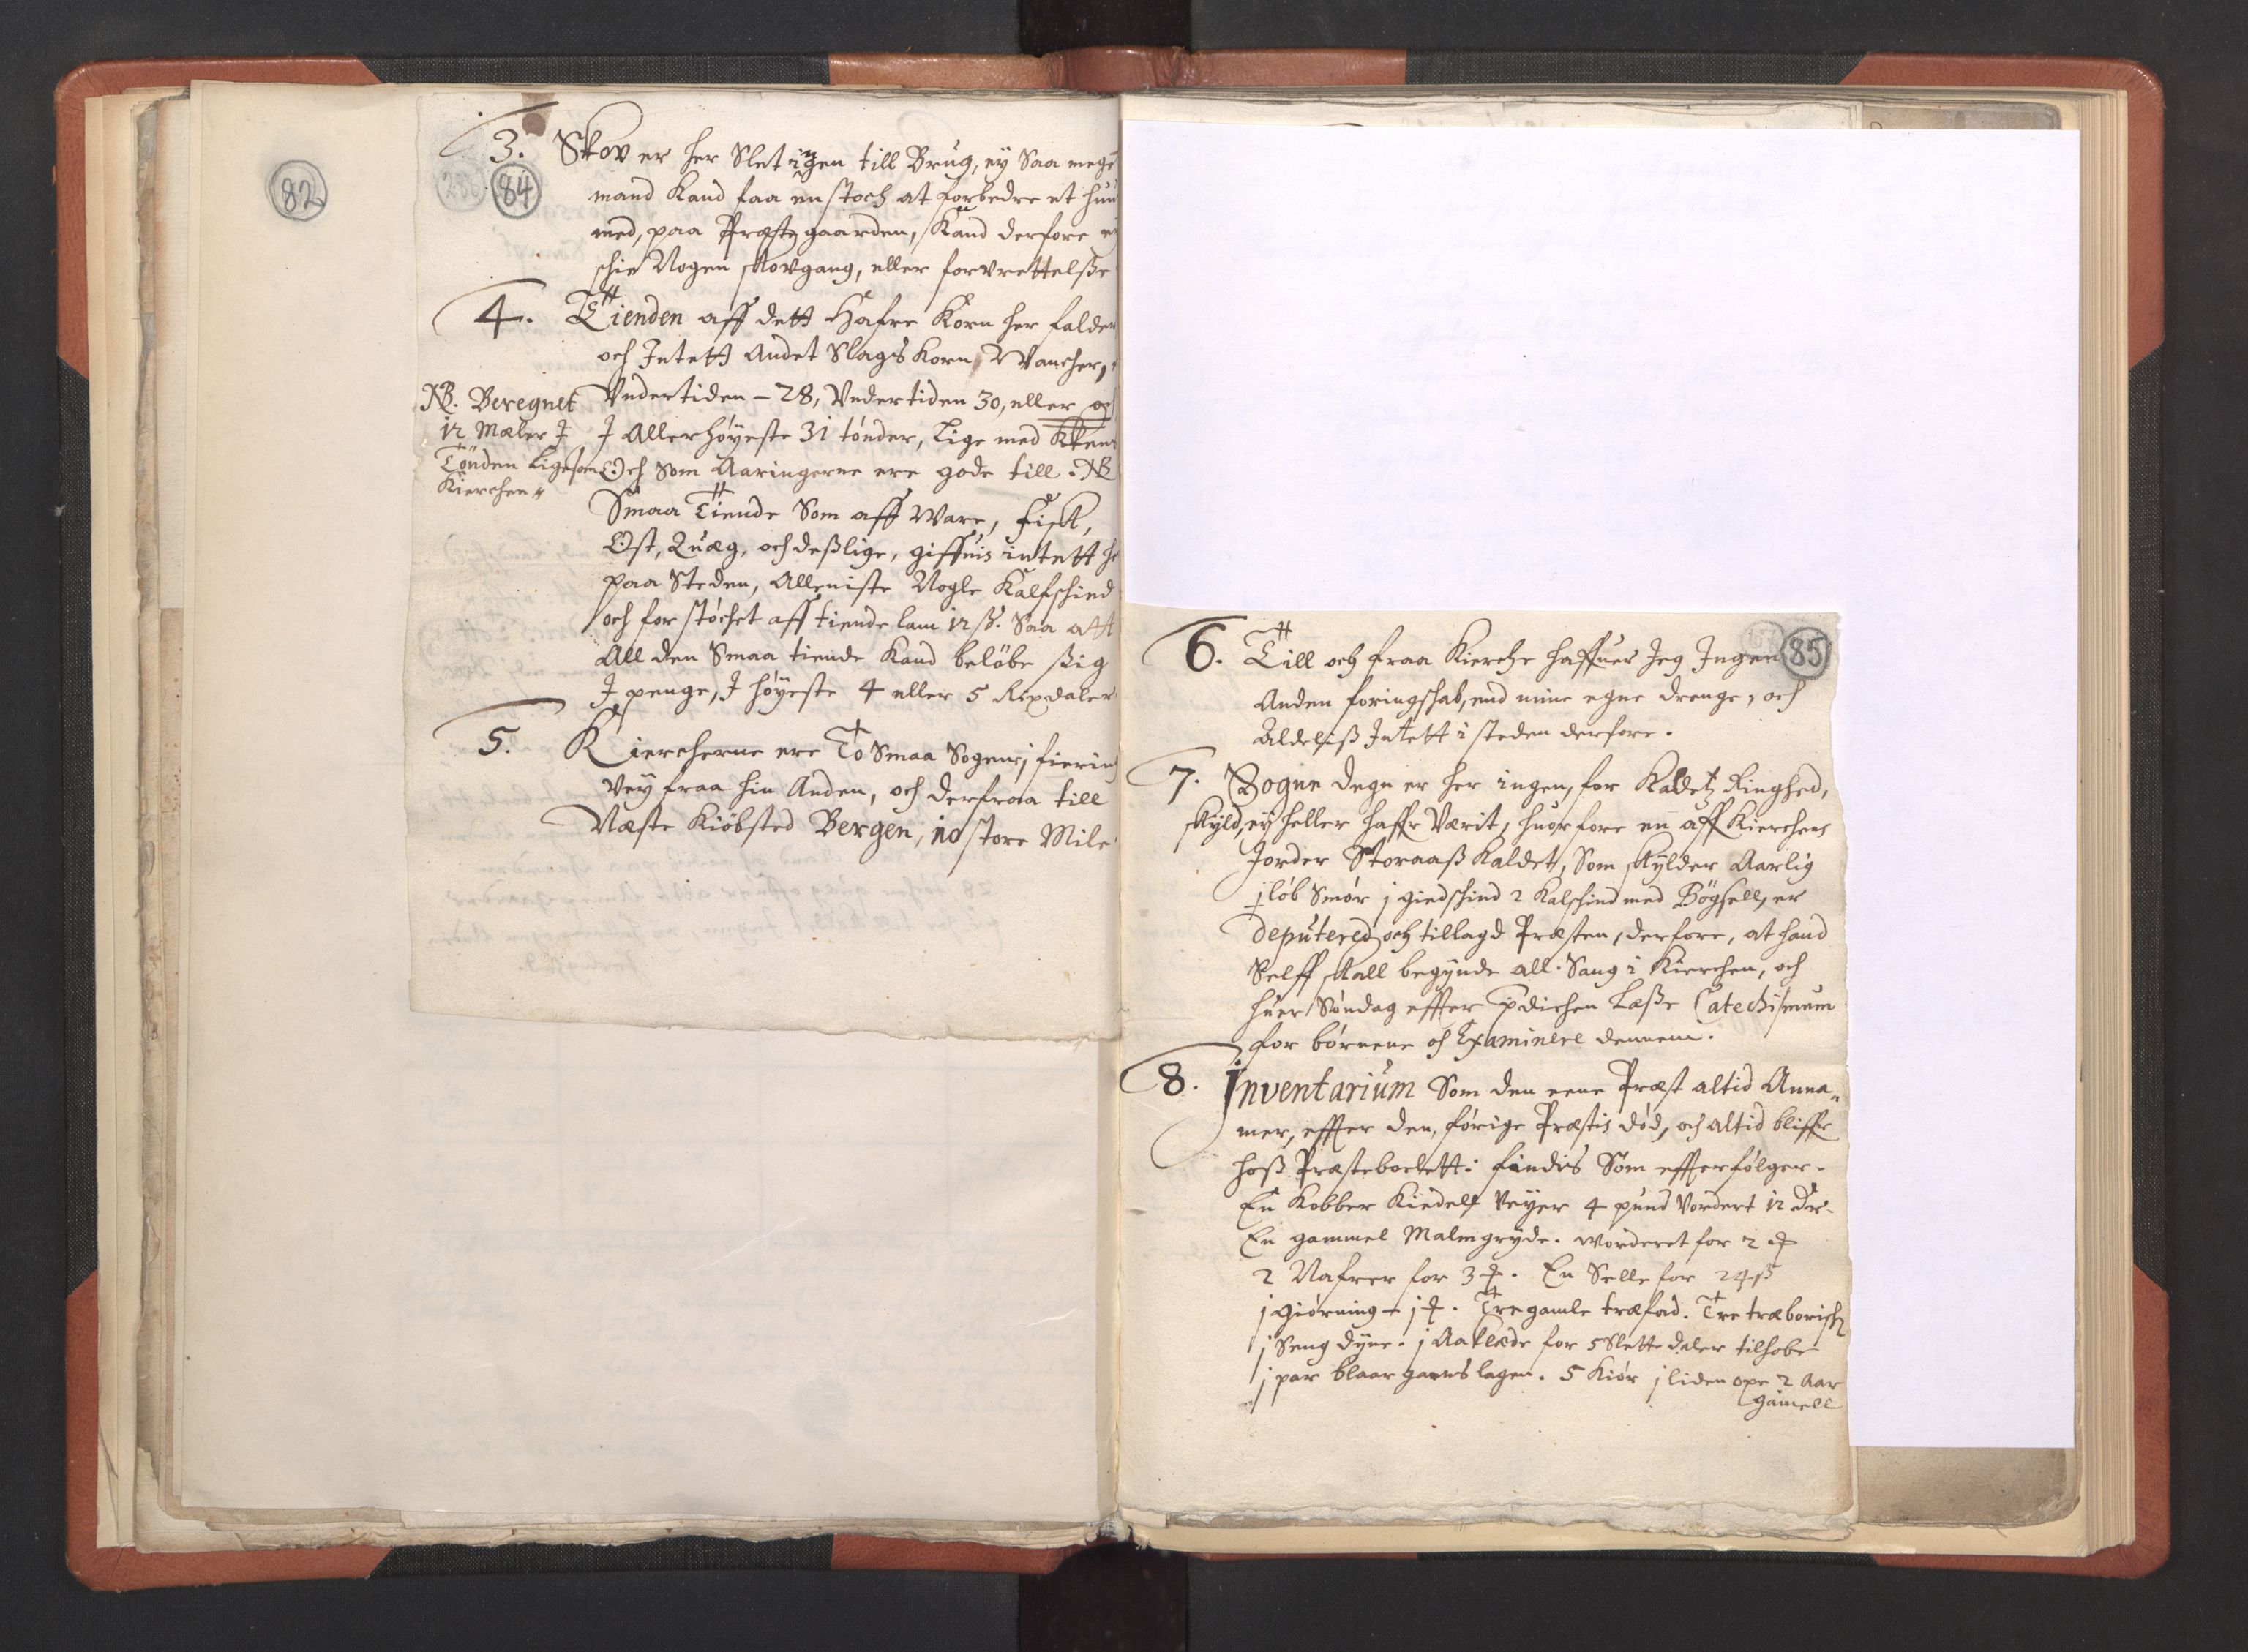 82
3. Skov er her Slet ingen till Brug, ey Saa meget
84
mand Kand faa en stoch at forbedre et huu
med, paa Præste gaarden, Kand derfore ei
schie Nogen skovgang, eller forvrettelsse
4. Tienden aff dett Hafre Korn her falder
och Intett Andet Slags Korn, Vancher,
NB. Beregnet
12 Mæler I
Tønden ligesom
Kierchen
Vndertiden – 28, Vndertiden 30, eller og
I Allerhøyeste 31 tónder, Lige med
Och Som Aaringerne ere gode till. NB
Smaa Tiende Som aff Ware, Fisk,
Ost, Quæg, och desslige, giffuis intett he
paa Steden, Alleniste Nogle Kalfschind
och for stóchet aff tiende lam 12 ß. Saa att
All den Smaa tiende Kand belöbe sig
I penge, I høyeste 4 eller 5 Rixdaler
5. Kiercherne ere To Smaa Sogner, j fiering
Vey fraa hin Anden, och derfraa till
Næste Kiöbsted Bergen, 10 store Mile
85
6. Till och fraa Kierche haffuer Jeg Ingen
Anden foringschab, end mine egne drenge, och
Aldeliss Intett i steden derfore.
7. Sogne degn er her ingen, for Kaldetz Ringhed,
skyld, ey heller haffr Værit, huorfore en aff Kierchens
Jorder Storaass Kaldet, Som skylder Aarlig
j löb Smór j giedschind 2 Kalschind med Bögsell, er
deputered och tillagd Præsten, derfore, at hand
Selff skall begynde all Sang i Kierchen, och
huer Søndag effter prdichen Læsse Catechismum
for börnene och Examinere dennem.
8. Inventarium Som den eene Præst altid Anna-
mer, effter den, förige Præstis död, och altid bliffr
hoss Præstebolett: findis Som effterfölger.
En Kobber Kiedell Veyer 4 pund Vordert 12 dr.
En gammel Malmgryde. Worderet for 2
2 Nafrer for 3. En Selle for 24 ß
j giörning – j. Tre gamle træfad. Tre træ
j Seng dyne. j Aaklæde for 5 Slette daler tilhobe
j par blaar garns lagen. 5 Kiór j liden oxe 2 Aar
gamell